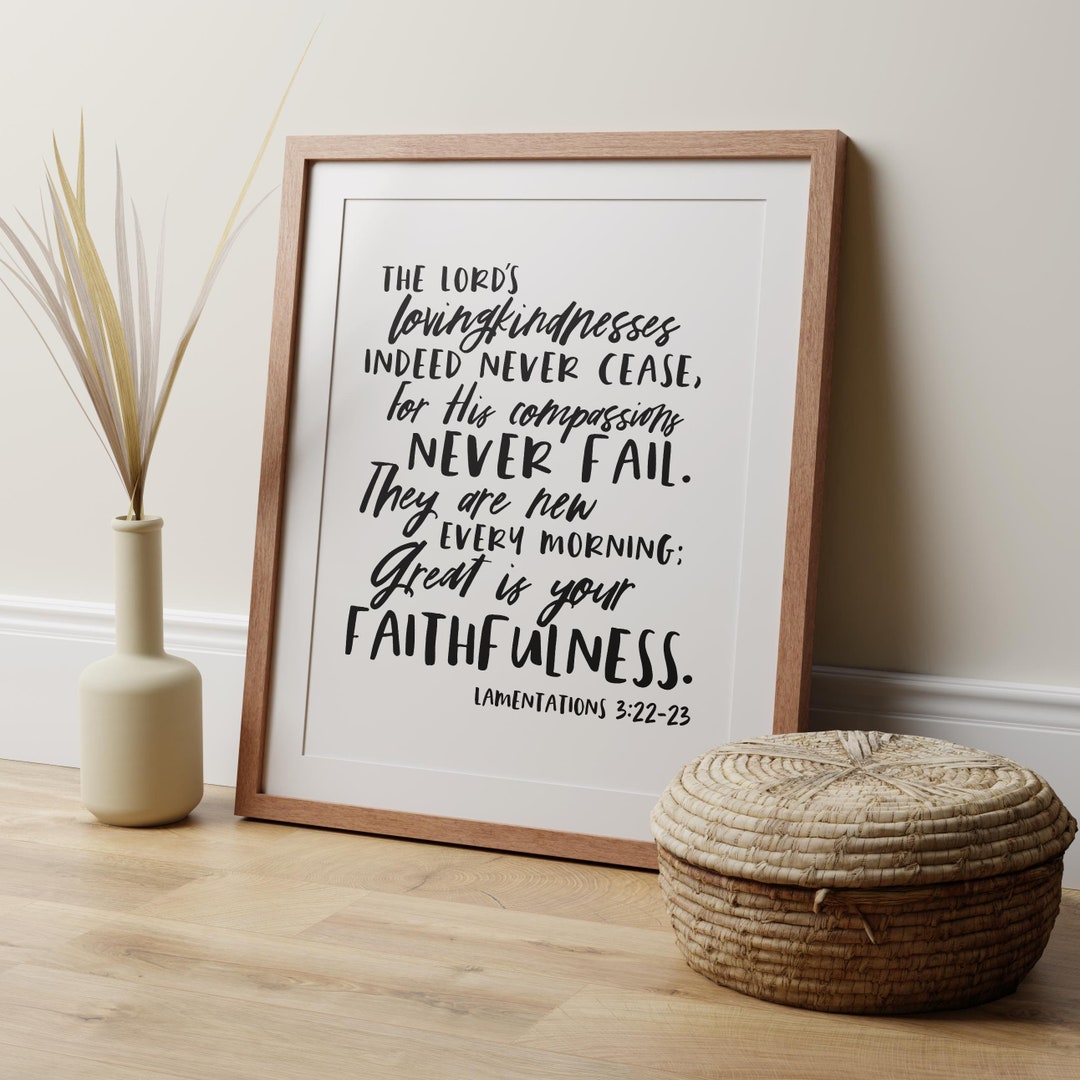 THE LORD'S
lovingkindnesses
INDEED NEVER CEASE,
For His compassions
NEVER FAIL.
They are new
EVERY MORNING;
Great is your
FAITHFULNESS.
LAMENTATIONS 3:22-23